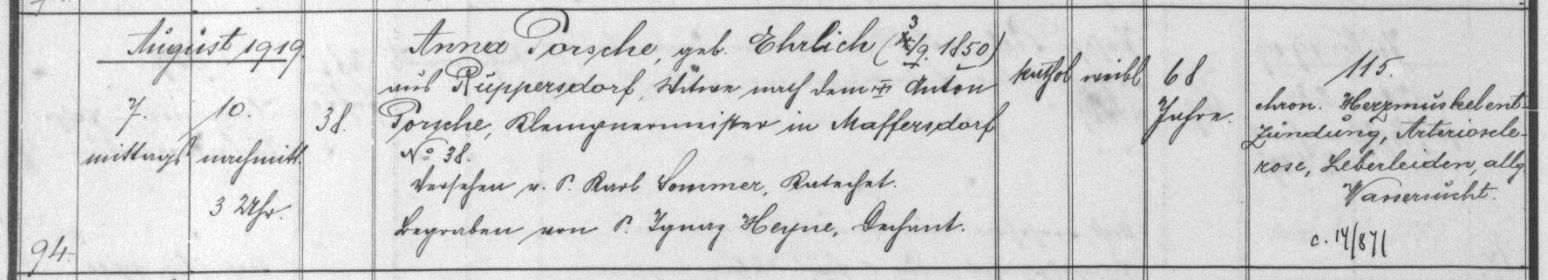 August 1919.
7. mittags
10. nachmitt. 3 Uhr.
38.
Anna Porsche, geb. Ehrlich (3/9. 1850)
aus Ruppersdorf, Witwe nach dem Anton
Porsche, Klempnermeister in Maffersdorf
No 38.
Versehen v. P. Karl Sommer, Katechet.
Begraben von P. Ignaz Heyne, Dechant.
kathol
weibl
68
Jahre.
115.
chron. Herzmuskelent-
zündung, Arterioscle-
rose, Leberleiden, allg
Wassersucht.
c. 14/871
94.